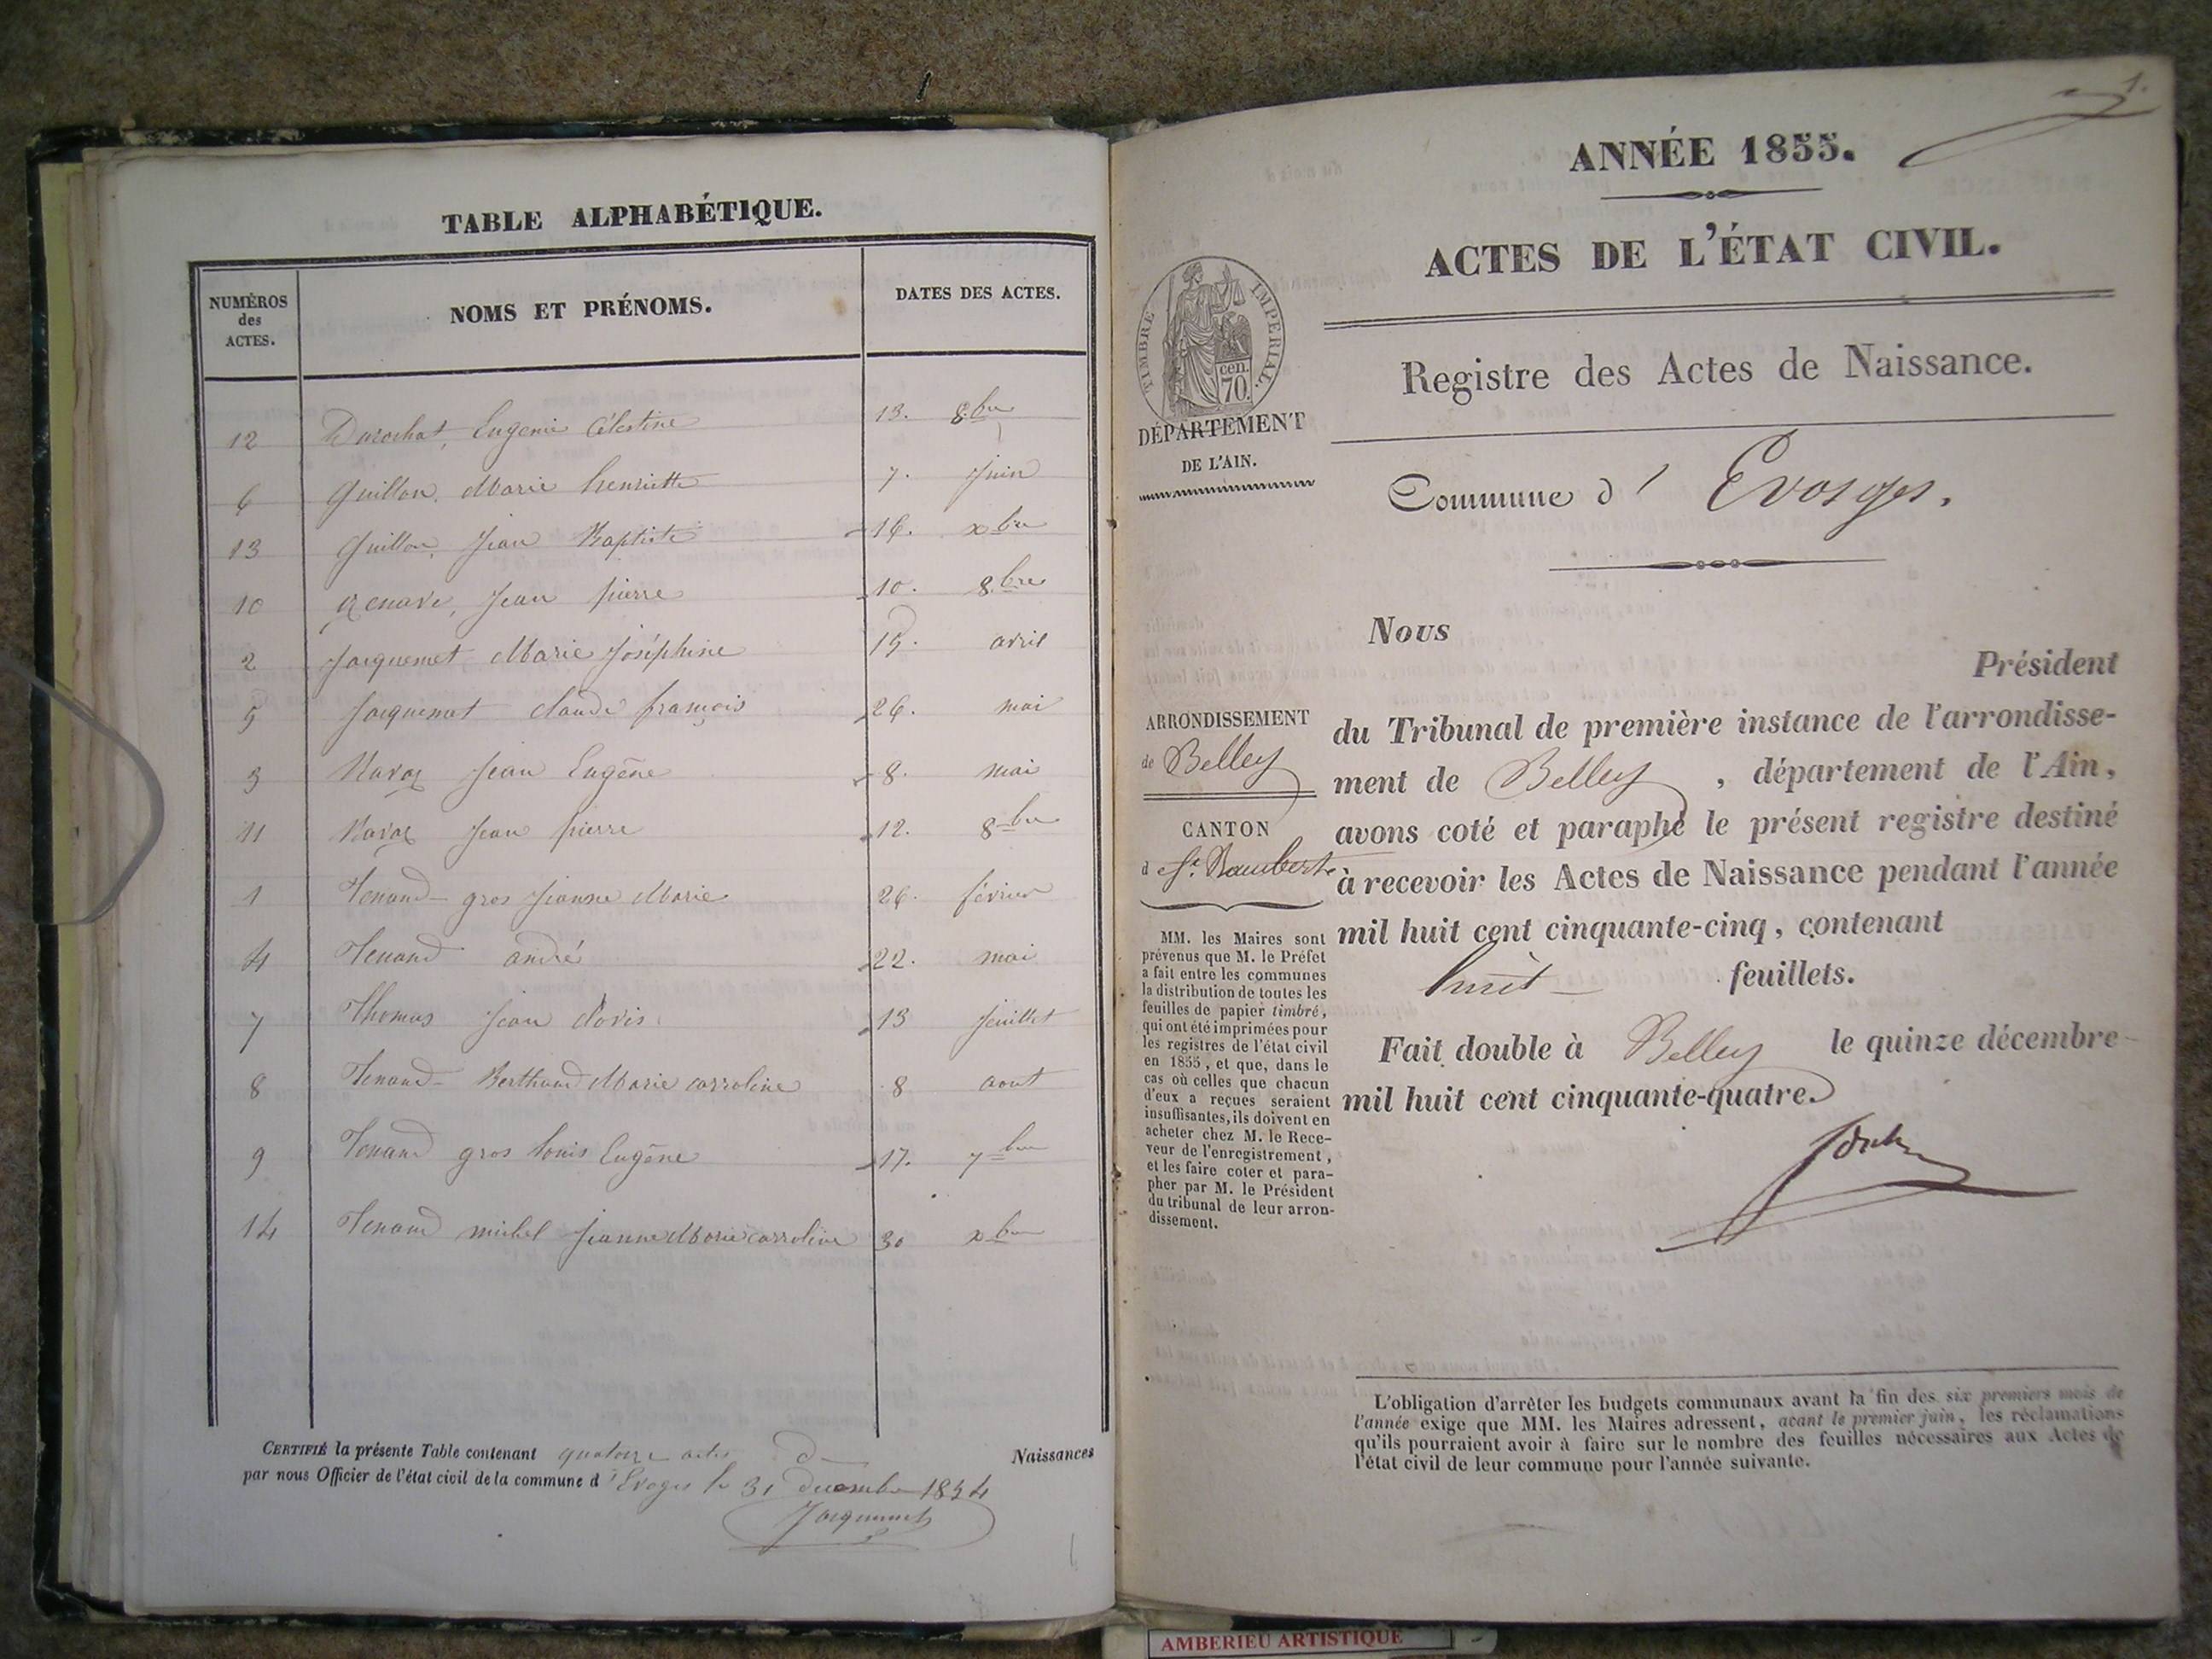 TABLE ALPHABÉTIQUE.
NUMÉROS des ACTES. NOMS ET PRÉNOMS. DATES DES ACTES.
12 Durochat, Eugenie Célestine 13. 8bre
6 Guillon, Marie henriette 7. Juin
13 Guillon, Jean Baptiste 16. xbre
10 Jean pierre 10. 8bre
2 Jacquemet Marie Joséphine 15. avril
5 Jacquemet claude françois 26. mai
3 Jean Eugène 8. mai
11 Jean pierre 12. 8bre
1 Tenand gros Jeanne Marie 26. février
4 Tenand andré 22. mai
7 Thomas Jean 13 Juillet
8 Tenand Berthand Marie carroline 8 aout
9 Tenand gros louis Eugène 17. 7bre
14 Tenand michel Jeanne Marie carroline 30 xbre
CERTIFIÉ la présente Table contenant quatorze actes d Naissances
par nous Officier de l'état civil de la commune d'Evoges le 31 décembre 1854
Jacquemet
1.
ANNÉE 1855.
ACTES DE L'ÉTAT CIVIL.
Registre des Actes de Naissance.
TIMBRE IMPÉRIAL.
cen.
70.
DÉPARTEMENT
DE L'AIN.
Commune d' Evosges.
Nous
Président
du Tribunal de première instance de l'arrondisse-
ment de Belley, département de l'Ain,
avons coté et paraphé le présent registre destiné
à recevoir les Actes de Naissance pendant l'année
mil huit cent cinquante-cinq, contenant
huit feuillets.
Fait double à Belley le quinze décembre
mil huit cent cinquante-quatre.
ARRONDISSEMENT
de Belley
CANTON
d St. Rambert
MM. les Maires sont
prévenus que M. le Préfet
a fait entre les communes
la distribution de toutes les
feuilles de papier timbré,
qui ont été imprimées pour
les registres de l'état civil
en 1855, et que, dans le
cas où celles que chacun
d'eux a reçues seraient
insuffisantes, ils doivent en
acheter chez M. le Rece-
veur de l'enregistrement,
et les faire coter et para-
pher par M. le Président
du tribunal de leur arron-
dissement.
L'obligation d'arrêter les budgets communaux avant la fin des six premiers mois de
l'année exige que MM. les Maires adressent, avant le premier juin, les réclamations
qu'ils pourraient avoir à faire sur le nombre des feuilles nécessaires aux Actes de
l'état civil de leur commune pour l'année suivante.
AMBERIEU ARTISTIQUE